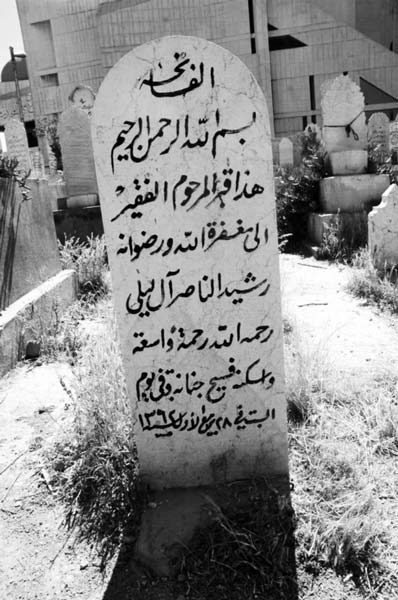 الفاتحة
بسم الله الرحمن الرحيم
هذا قبر المرحوم الفقير
الى مغفرة الله ورضوانه
رشيد الناصر آل ليلى
رحمه الله رحمة واسعة
واسكنه فسيح جنانه توفي يوم
السبت في ٢٨ ربيع الأول سنة ١٣٩٢